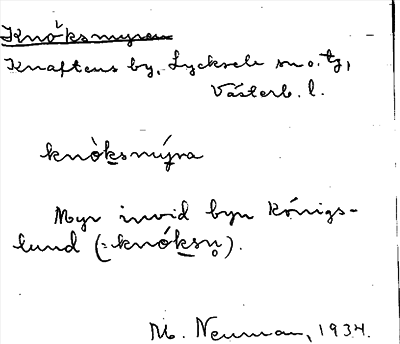 Knöksmyran
Knaftens by, Lycksele sn o. tg,
Västerb. l.
knò̀ksmýra
Myr invid byn Königs-
lund (=knóksn̥).
M. Neuman, 1934.